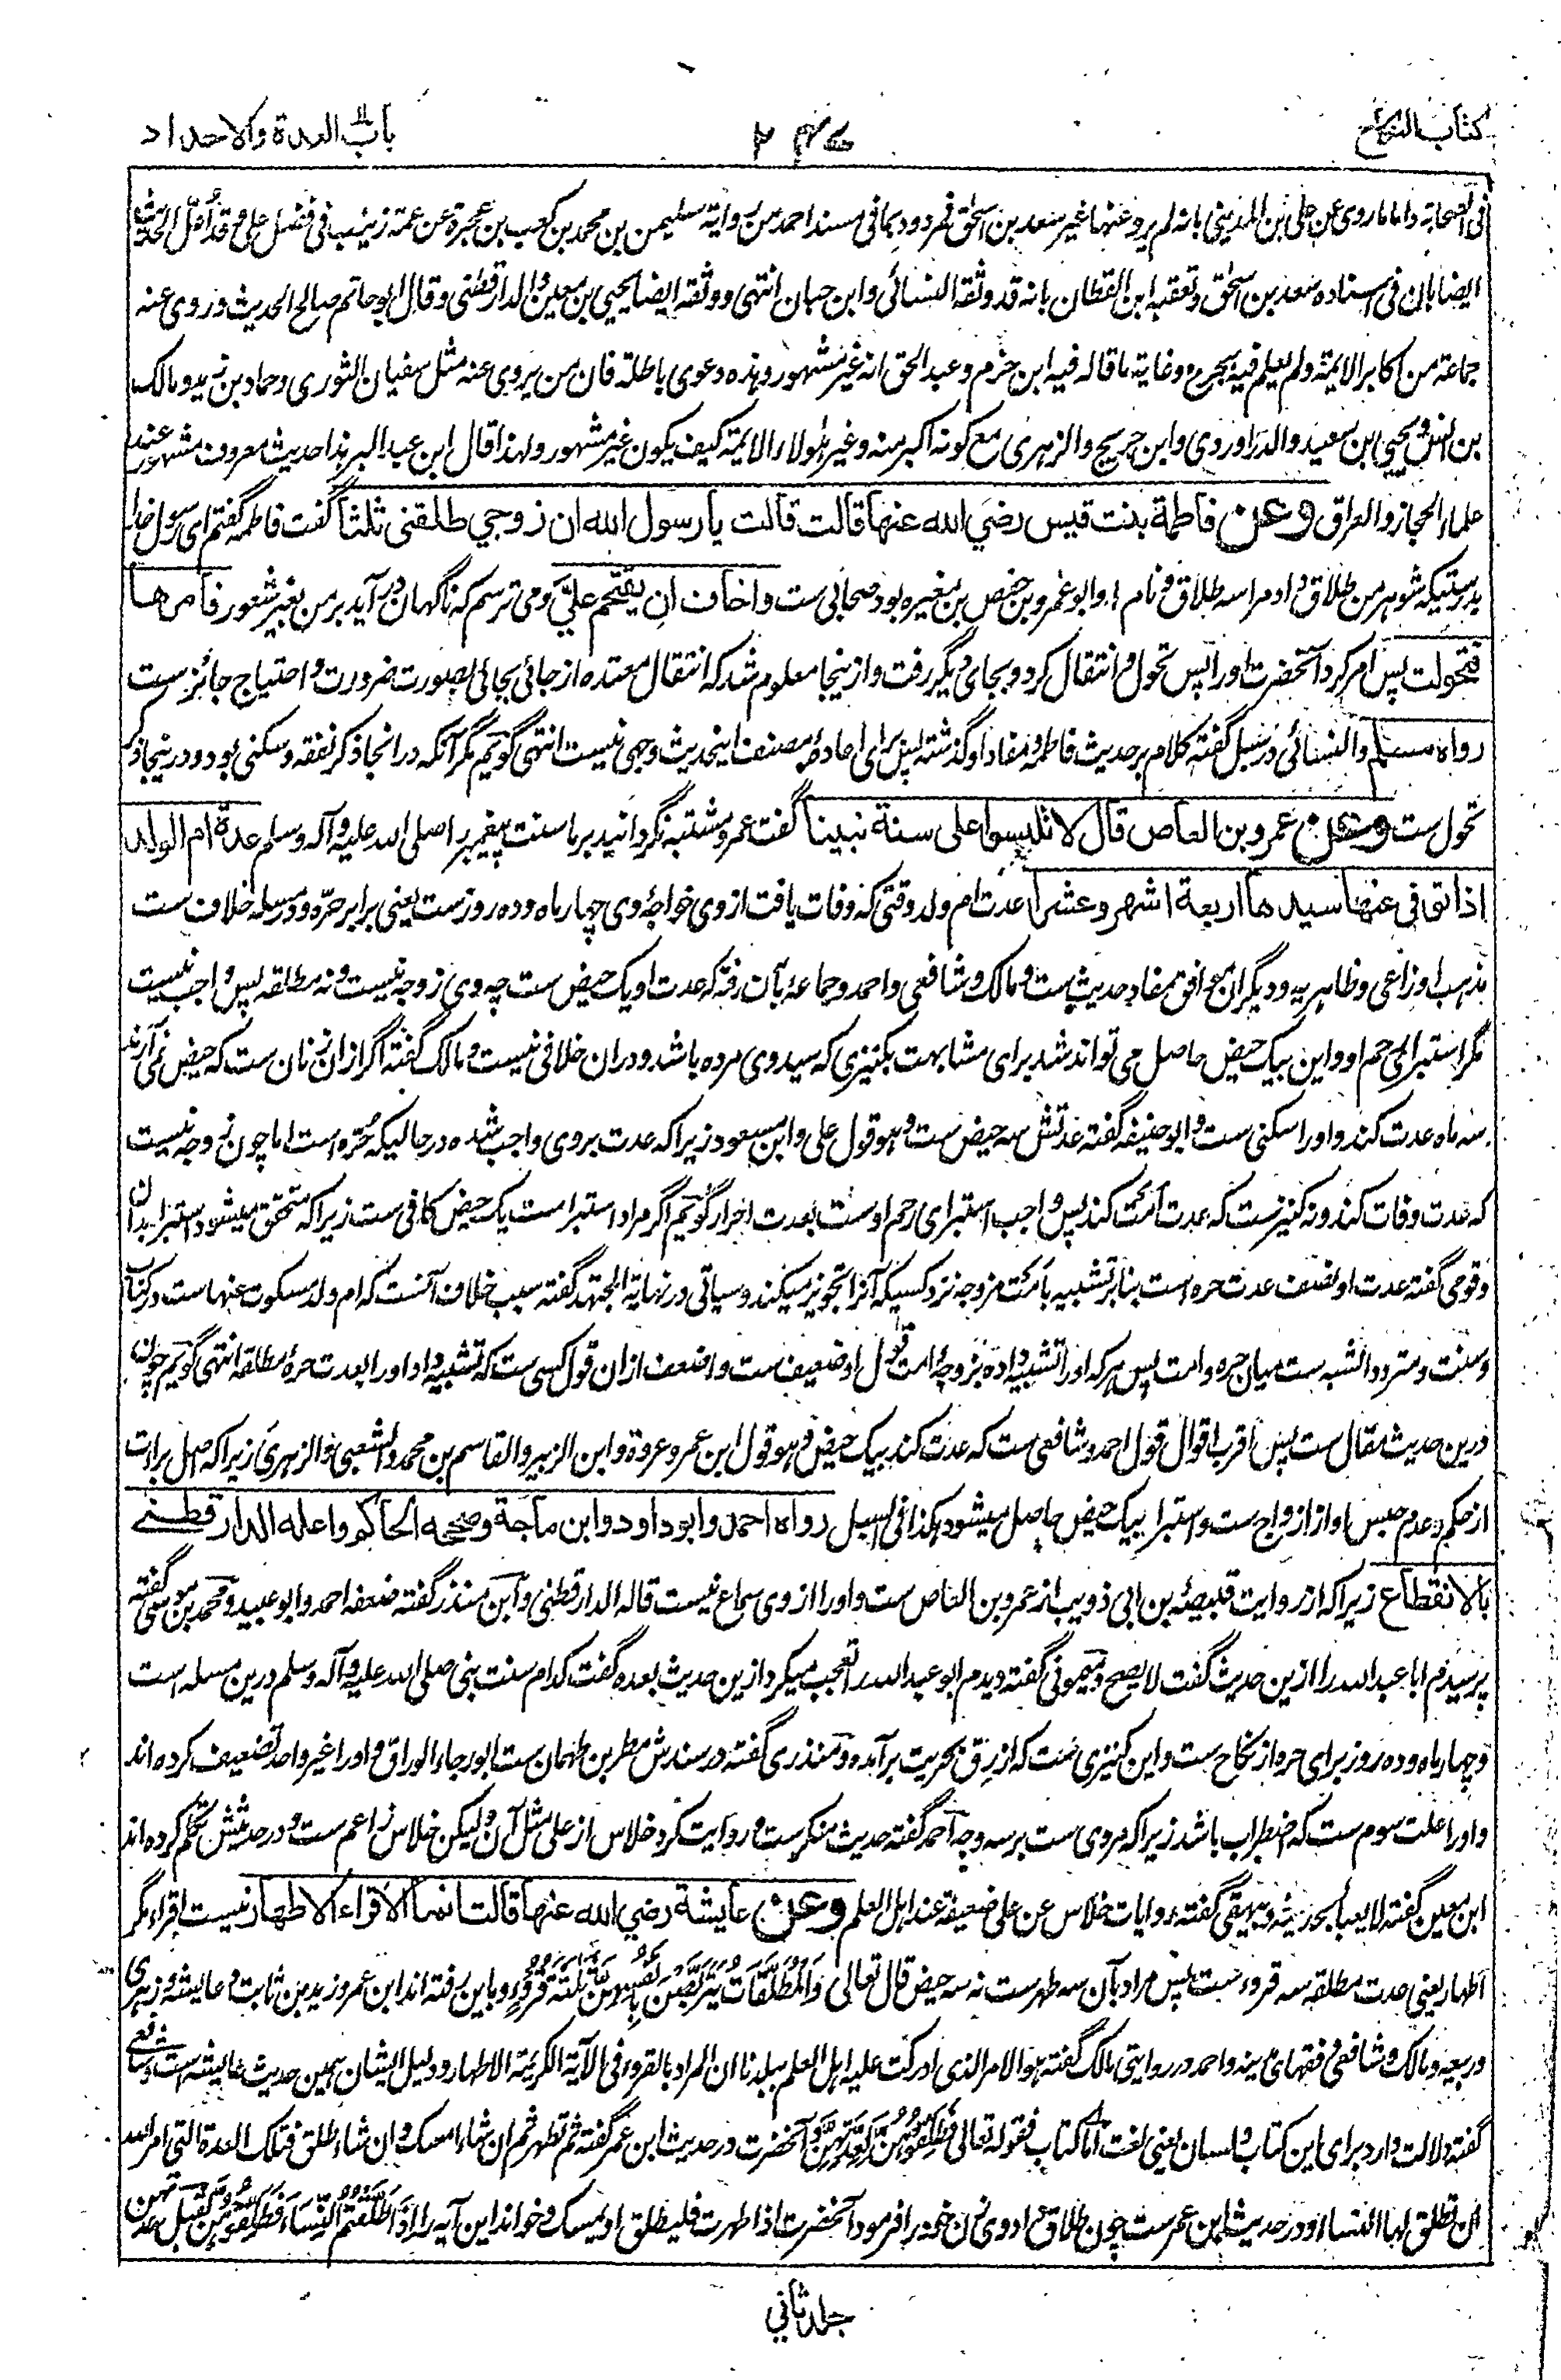 کتاب النکاح
۲۴۷
باب العدة والاحداد
فی الصحابة واما ما روی عن علی بن المدینی بانه لم یرو عنها غیر سعد بن اسحٰق فمردود بما فی مسند احمد من روایة سلیمن بن محمد بن کعب بن عجرة عن عمته زینب فی فضل علی وقد اُعلّ الحدیث
ایضا بان فی اسناده سعد بن اسحٰق وتعقبه ابن القطان بانه قد وثقه النسائی وابن حبان انتهی ووثقه ایضا یحیی بن معین والدارقطنی وقال ابو حاتم صالح الحدیث وروی عنه
جماعة من اکابر الایمة ولم یعلم فیه بجرح وغایة ما قاله فیه ابن حزم وعبد الحق انه غیر مشهور وهذه دعوی باطلة فان من یروی عنه مثل سفیان الثوری وحماد بن زید ومالک
بن انس ویحیی ابن سعید والدراوردی وابن جریج والزهری مع کونه اکبر منه وغیر هٰولاء الایمة کیف یکون غیر مشهور ولهذا قال ابن عبد البر هذا حدیث معروف مشهور عند
علماء الحجاز والعراق وعن فاطمة بنت قیس رضي الله عنها قالت قالت یا رسول الله ان زوجي طلقنی ثلثا گفت فاطمه گفتم ای رسول خدا
بدرستیکه شوهر من طلاق داد مرا سه طلاق ونام او ابو عمرو بن حفص بن مغیره بود صحابی ست واخاف ان یقتحم علیَّ ومی ترسم که ناگهان در آید بر من بغیر شعور فامرها
فتحولت پس امر کرد آنحضرت او را پس تحول وانتقال کرد وبجای دیگر رفت وازینجا معلوم شد که انتقال معتده از جائی بجائی بصورت ضرورت واحتیاج جائزست
رواه مسلم والنسائی در سبل گفته کلام بر حدیث فاطمه ومفاد او گذشته پس برای اعادهٔ مصنف اینحدیث وجهی نیست انتهی گویم مگر آنکه در انجا ذکر نفقه وسکنی بود ودرینجا ذکر
تحول ست وعن عمرو بن العاص قال لا تلبسوا علی سنة نبینا گفت عمرو مشتبه نگردانید بر ما سنت پیغمبر را صلی الله علیه وآله وسلم عدة ام الولد
اذا توفی عنها سیدها اربعة اشهر وعشرا عدت ام ولد وقتی که وفات یافت از وی خواجهٔ وی چهار ماه وده روزست یعنی برابر حرّه ودر مسله خلاف ست
مذهب اوزاعی وظاهریه ودیگران موافق مفاد حدیث ست ومالک وشافعی واحمد وجماعهٔ بآن رفته که عدت او یک حیض ست چه وی زوجه نیست ونه مطلقه پس واجب نیست
مگر استبرای رحم او واین بیک حیض حاصل می تواند شد برای مشابهت بکنیزی که سید وی مرده باشد ودران خلافی نیست ومالک گفته اگر از ان زنان ست که حیض نمی آرند
سه ماه عدت کند واو را سکنی ست وابو حنیفه گفته عدتش سه حیض ست وهو قول علی وابن مسعود زیرا که عدت بر وی واجب شده در حالیکه حُرّه است اما چون زوجه نیست
که عدت وفات کند ونه کنیزست که عدت اَمَت کند پس واجب استبرای رحم اوست بعدت احرار گویم اگر مراد استبراست یک حیض کافی ست زیرا که متحقق میشود استبرا بدان
وقومی گفته عدت او نصف عدت حره است بنابر تشبیه باَمَتِ مزوجه نزد کسیکه آنرا تجویز میکند وسیاتی در نهایة المجتهد گفته سبب خلاف آنست که ام ولد مسکوت عنهاست در کتاب
وسنت ومتردد الشبه ست میان حره وامت پس هرکه او را تشبیه داده بزوجهٔ امت قول او ضعیف ست واضعف ازان قول کسی ست که تشبیه داد او را بعدت حرهٔ مطلقه انتهی گویم چون
درین حدیث مقال ست پس اقرب اقوال قول احمد وشافعی ست که عدت کند بیک حیض وهو قول ابن عمر وعروة وابن الزبیر والقاسم بن محمد والشعبی والزهری زیرا که اصل براءت
از حکم وعدم حبس او از ازواج ست واستبرا بیک حیض حاصل میشود هکذا فی السبل رواه احمد وابو داود وابن ماجة وصححه الحاکم واعله الدارقطني
بالانقطاع زیرا که از روایت قبیصهٔ بن ابی ذویب از عمرو بن العاص ست واو را از وی سماع نیست قاله الدارقطنی وابن منذر گفته ضعفه احمد وابو عبید ومحمد بن موسی گفته
پرسیدم ابا عبد الله را ازین حدیث گفت لا یصح ومیمونی گفته دیدم ابو عبد الله را تعجب میکرد ازین حدیث بعده گفت کدام سنت نبی صلی الله علیه وآله وسلم درین مسله است
وچهار ماه وده روز برای حره از نکاح ست واین کنیزی ست که از رِق بحریت برآمده ومنذری گفته در سندش مطر بن طهمان ست ابو رجاء الوراق واو را غیر واحد تضعیف کرده اند
واو را علت سوم ست که اضطراب باشد زیرا که مروی ست بر سه وجه احمد گفته حدیث منکرست وروایت کرد خلاس از علی مثل آن ولیکن خلاس زاعم ست ودر حدیثش تکلم کرده اند
ابن معین گفته لا یعبأ بحدیثه وبیهقی گفته روایات خلاس عن علی ضعیفة عند اهل العلم وعن عایشة رضي الله عنها قالت انما الاقراء الاطهار نیست اقراء مگر
اطهار یعنی عدت مطلقه سه قروء ست پس مراد بآن سه طهرست نه سه حیض قال تعالی وَالْمُطَلَّقَاتُ یَتَرَبَّصْنَ بِاَنْفُسِهِنَّ ثَلٰثَةَ قُرُوْءٍ وباین رفته اند ابن عمر وزید بن ثابت وعایشه وزهری
وربیعه ومالک وشافعی وفقهای مدینه واحمد در روایتی مالک گفته هو الامر الذی ادرکت علیه اهل العلم ببلدنا ان المراد بالقروء فی الآیة الکریمة الاطهار ودلیل ایشان همین حدیث عایشه است وشافعی
گفته دلالت دارد برای این کتاب ولسان یعنی لغت اما کتاب فقوله تعالی فَطَلِّقُوْهُنَّ لِعِدَّتِهِنَّ وآنحضرت در حدیث ابن عمر گفته ثم تطهر ثم ان شاء امسک وان شاء طلق فتلک العدة التی امر الله
ان تطلق لها النساء ودر حدیث ابن عمرست چون طلاق داد وی زن خود را فرمود آنحضرت اذا طهرت فلیطلق او یمسک وخواند این آیه را اِذَا طَلَّقْتُمُ النِّسَاءَ فَطَلِّقُوْهُنَّ لِقُبُلِ عِدَّتِهِنَّ
جلد ثانی